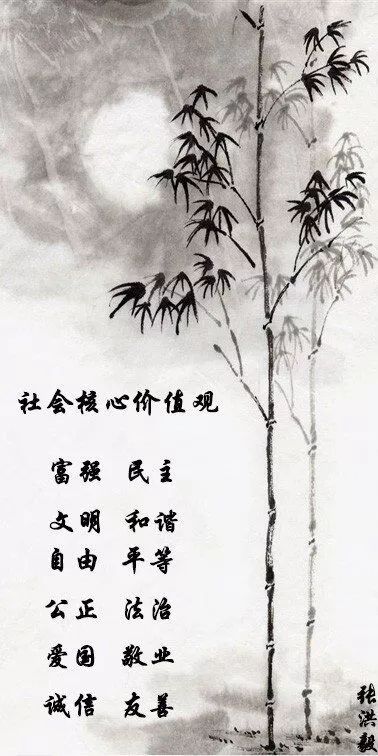 社会核心价值观
富强 民主
文明 和谐
自由 平等
公正 法治
爱国 敬业
诚信 友善
张洪毅